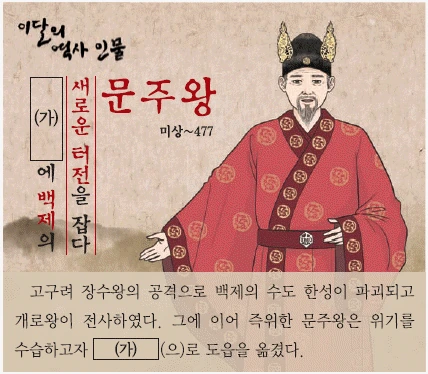 이달의
역사 인물
문주왕
미상~477
(가)에 백제의
새로운 터전을 잡다
고구려 장수왕의 공격으로 백제의 수도 한성이 파괴되고
개로왕이 전사하였다. 그에 이어 즉위한 문주왕은 위기를
수습하고자 (가) (으)로 도읍을 옮겼다.